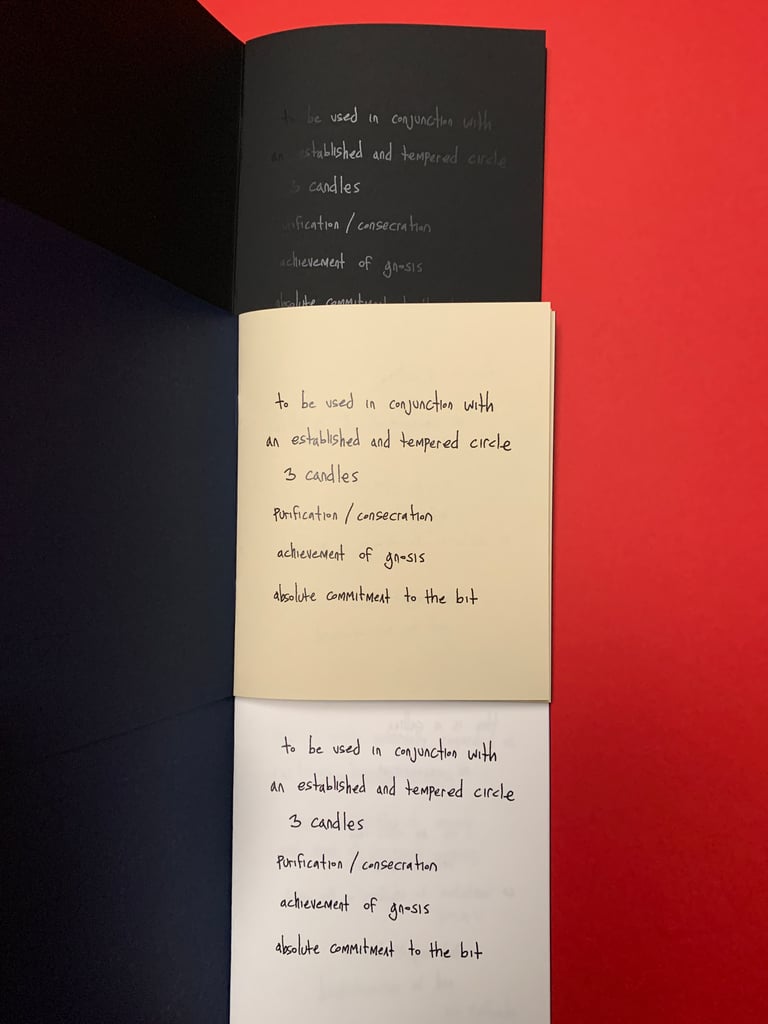 to be used in conjunction with
an established and tempered circle
3 candles
purification / consecration
achievement of gnosis
absolute commitment to the
to be used in conjunction with
an established and tempered circle
3 candles
purification / consecration
achievement of gnosis
absolute commitment to the bit
to be used in conjunction with
an established and tempered circle
3 candles
purification / consecration
achievement of gnosis
absolute commitment to the bit